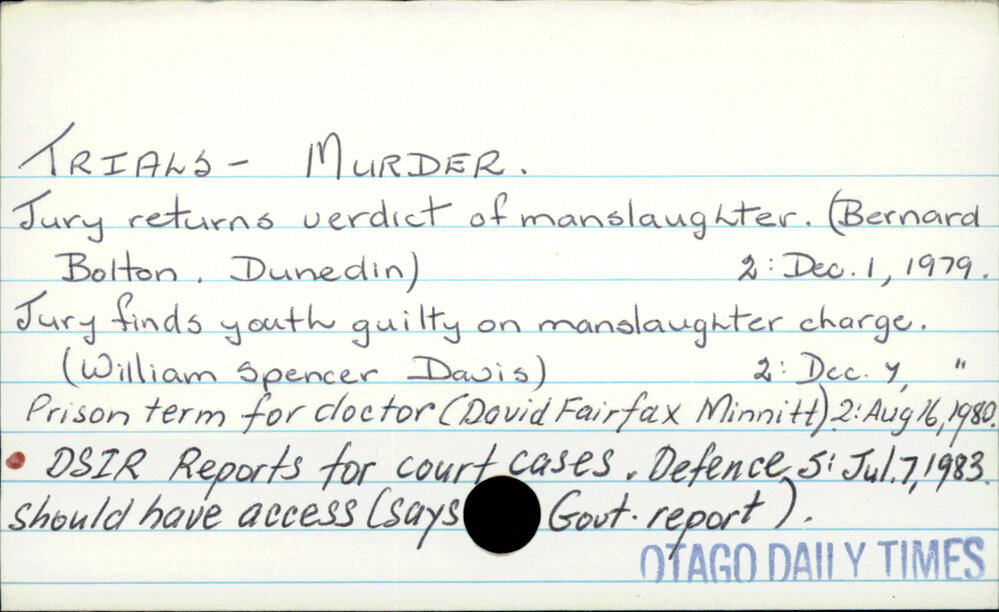 TRIALS - MURDER.
Jury returns verdict of manslaughter. (Bernard
Bolton, Dunedin) 2: Dec. 1, 1979.
Jury finds youth guilty on manslaughter charge.
(William Spencer Davis) 2: Dec. 4, "
Prison term for doctor (David Fairfax Minnitt) 2: Aug 16, 1980.
• DSIR Reports for court cases. Defence 5: Jul. 7, 1983.
should have access (says Govt. report).
OTAGO DAILY TIMES